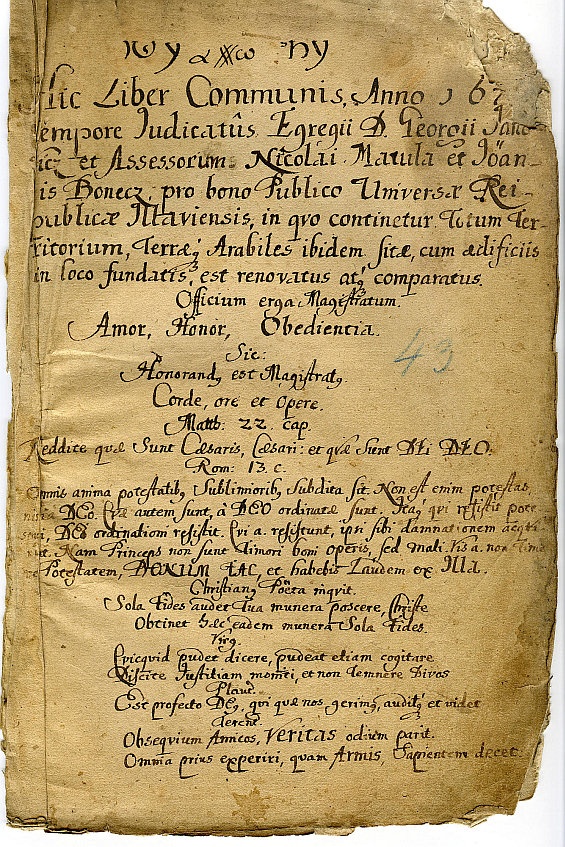 Hic Liber Communis, Anno 167
empore Judicatûs Egregii D. Georgii
et Assessorum Nicolai Matula et Joan-
is Bonecz pro bono Publico Universæ Rei-
publicæ Illaviensis, in qvo continetur Totum Ter-
ritorium, Terræq; Arabiles ibidem sitæ, cum ædificiis
in loco fundatis, est renovatus atq; comparatus.
Officium erga Magistratum.
Amor, Honor, Obedientia.
Sic:
Honorandq est Magistratq
Corde, ore et Opere.
Matth: 22. cap.
43
Reddite quæ Sunt Cæsaris, Cæsari: et qvæ Sunt DEI DEO.
Rom: 13. c.
Omnis anima potestatibq Sublimioribq Subdita sit. Non est enim potestas
nisi a DEO. Qvæ autem sunt, â DEO ordinatæ sunt. Itaq, qvi resistit pote
stati, DEO ordinationi resistit. Qvi a. resistunt, ipsi sibi damnationem acqvi
runt. Nam Princeps non sunt Timori boni operis, sed mali. Vis a. non time
re Potestatem, BONUM FAC, et habebis Laudem ex Illa.
Christianq Poëta inqvit.
Sola Fides audet Tua munera poscere, Christe
Obtinet hæc eadem munera Sola Fides.
Virg
Qvicqvid pudet dicere, pudeat etiam cogitare
Discite Justitiam moniti, et non Temnere Divos
Plaut.
Est profecto DEq, qvi quæ nos gerimq, auditq et videt
Terent.
Obseqvium Amicos, Veritas odium parit.
Omnia prius experiri, quam Armis, Sapientem decet.